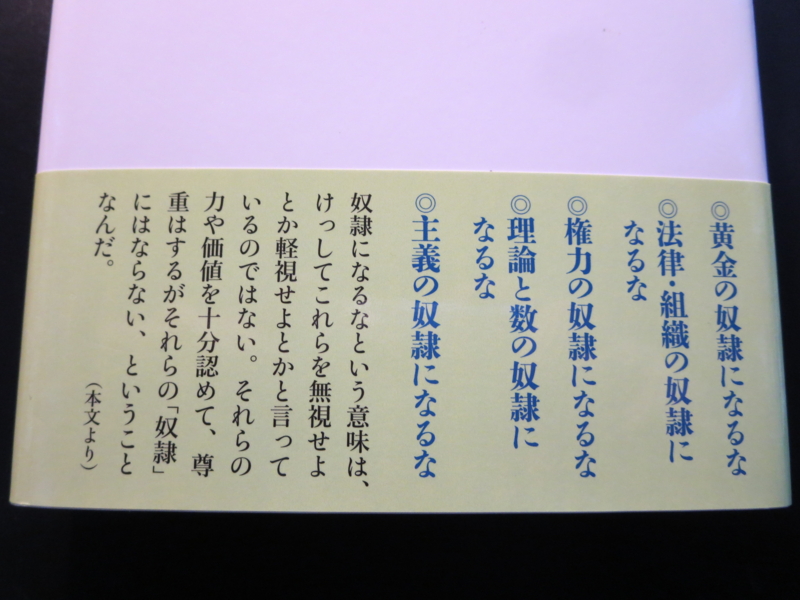 ◎黄金の奴隷になるな
◎法律・組織の奴隷に
なるな
◎権力の奴隷になるな
◎理論と数の奴隷に
なるな
◎主義の奴隷になるな
奴隷になるなという意味は、
けっしてこれらを無視せよ
とか軽視せよとかと言って
いるのではない。それらの
力や価値を十分認めて、尊
重はするがそれらの「奴隷」
にはならない、ということ
なんだ。
（本文より）